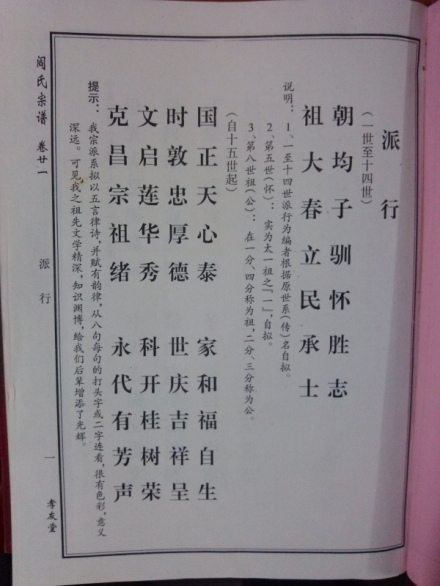 派行
(一世至十四世)
朝均子驯怀胜志
祖大春立民承士
说明:1、一至十四世派行为编者根据原世系(传)名自拟。
2、第五世(怀):实为太一祖之“一”,自拟。
3、第八世祖(公):在一分、四分称为祖,二分、三分称为公。
(自十五世起)
国正天心泰 家和福自生
时敦忠厚德 世庆吉祥呈
文启莲华秀 科开桂树荣
克昌宗祖绪 永代有芳声
提示:我宗派系拟以五言律诗,并赋有韵律,从八句每句的打头字或二字连看,很有色彩,意义
深远。可见我之祖先文学精深,知识渊博,给我们后辈增添了光辉。
阎氏宗谱 卷廿一
派行
一
孝友堂